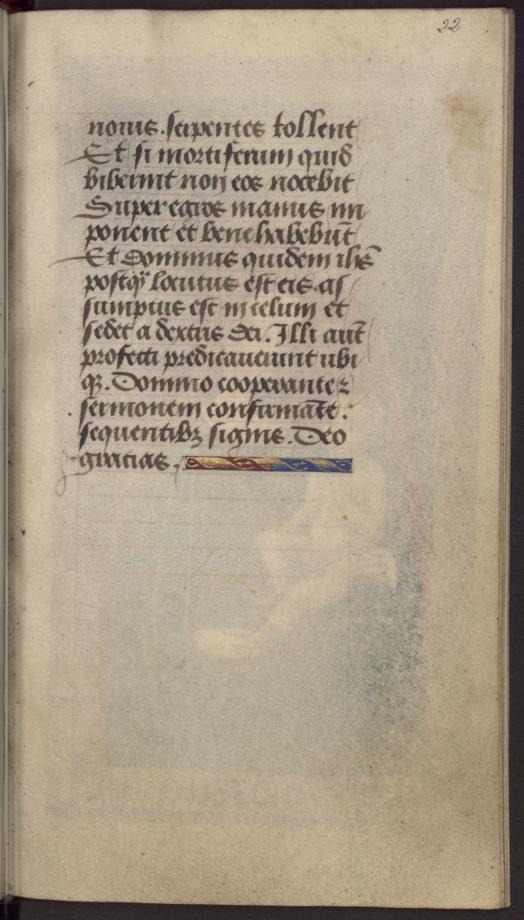 22
nouis. serpentes tollent
Et si mortiferum quid
biberint non eos nocebit
Super egros manus im
ponent et bene habebūt
Et Dominus quidem ihs̄
postq̄ʒ locutus est eis. as
sumptus est in celum et
sedet a dextris dei. Illi aut̄
profecti predicauerunt ubi
qʒ. Domino cooperante ⁊
sermonem confirmāte.
sequentibʒ signis. Deo
gracias.